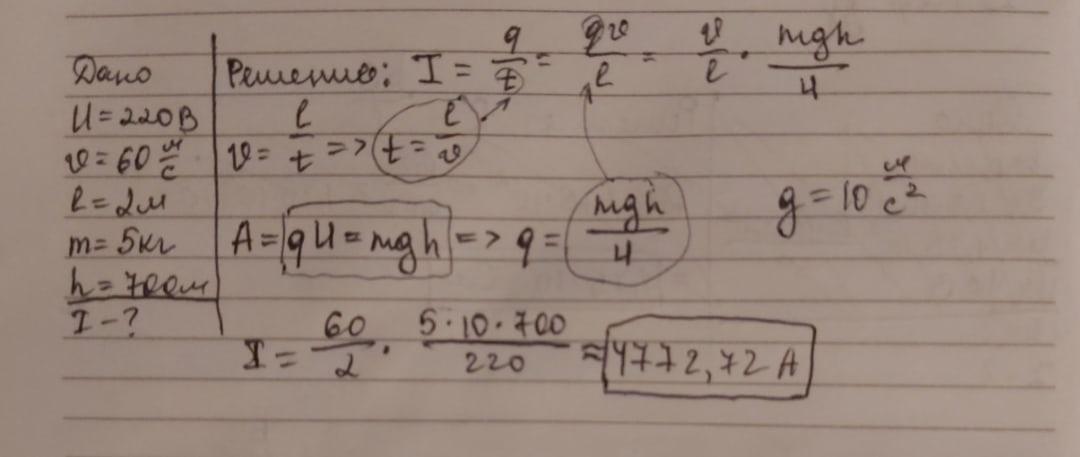 Дано
U = 220 В
v = 60 м/с
l = 2 м
m = 5 кг
h = 700 м
I - ?
Решение: I = q/t = qv/l = v/l · mgh/U
v = l/t => t = l/v
A = qU = mgh => q = mgh/U
g = 10 м/с²
I = 60/2 · 5·10·700/220 ≈ 4772,72 А